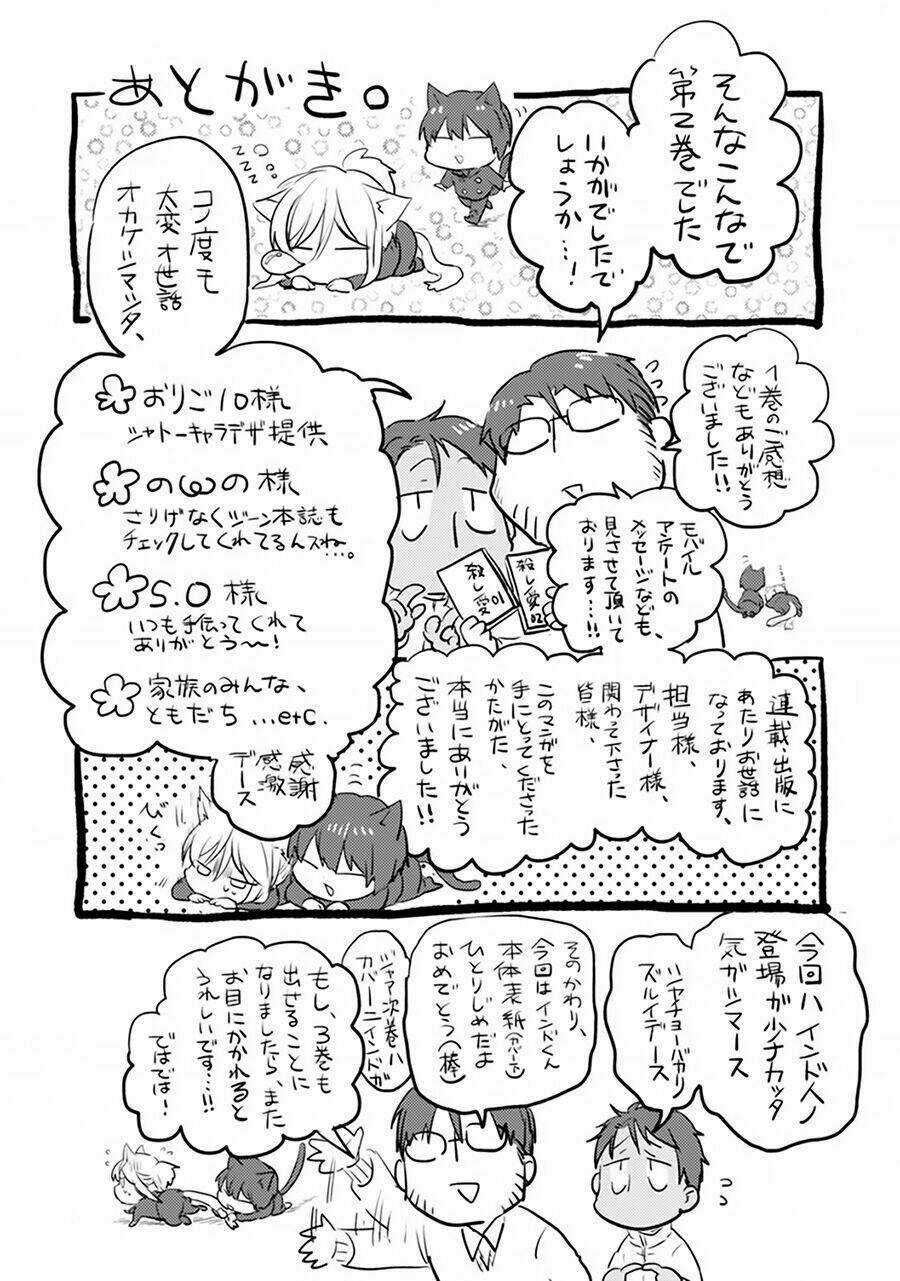 あとがき。
そんなこんなで
第2巻でした
いかがでしたで
しょうか…!
zzz
コノ度も
大変オ世話
オカケシマシタ、
おりご10様
シャトーキャラデザ提供
のωの様
さりげなくジーン本誌も
チェックしてくれてるんスね…。
S.O様
いつも手伝ってくれて
ありがとう〜!
家族のみんな、
ともだち …etc.
感謝
感激
デース
1巻のご感想
などもありがとう
ございました!!
モバイル
アンケートの
メッセージなども、
見させて頂いて
おります…!!
殺し愛01
殺し愛02
連載・出版に
あたりお世話に
なっております、
担当様、
デザイナー様、
関わって下さった
皆様、
このマンガを
手にとってくださった
かたがた、
本当にありがとう
ございました!!
びくっ
今回ハインド人ノ
登場が少ナカッタ
気ガシマース
シャチョーバカリ
ズルイデース
そのかわり、
今回はインドくん
本体表紙(カバー下)
ひとりじめだよ
おめでとう(棒)
ジャア次巻ハ
カバーニインドガ
もし、3巻も
出せることに
なりましたら、また
お目にかかれると
うれしいです…!!
ではでは!